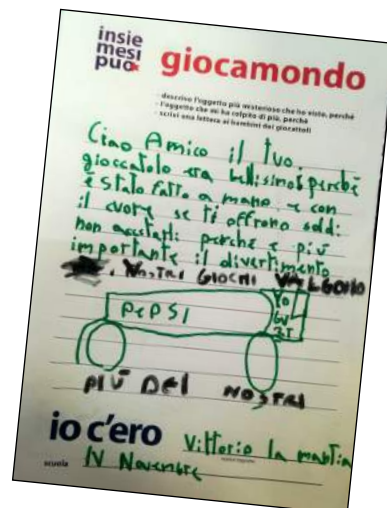 insie
mesi
può
giocamondo
- descrivo l'oggetto più misterioso che ho visto, perchè
- l'oggetto che mi ha colpito di più, perchè
- scrivi una lettera ai bambini dei giocattoli
Ciao Amico il tuo
gioccatolo era bellisimo! perchè
è stato fatto a mano e con
il cuore se ti offrono soldi
non accetarli perche è più
importante il divertimento
I VOSTRI GIOCHI VALGONO
PEPSI
YO
GU
RT
PIÙ DEI NOSTRI
io c'ero
Vittorio la mantia
scuola
IV Novembre